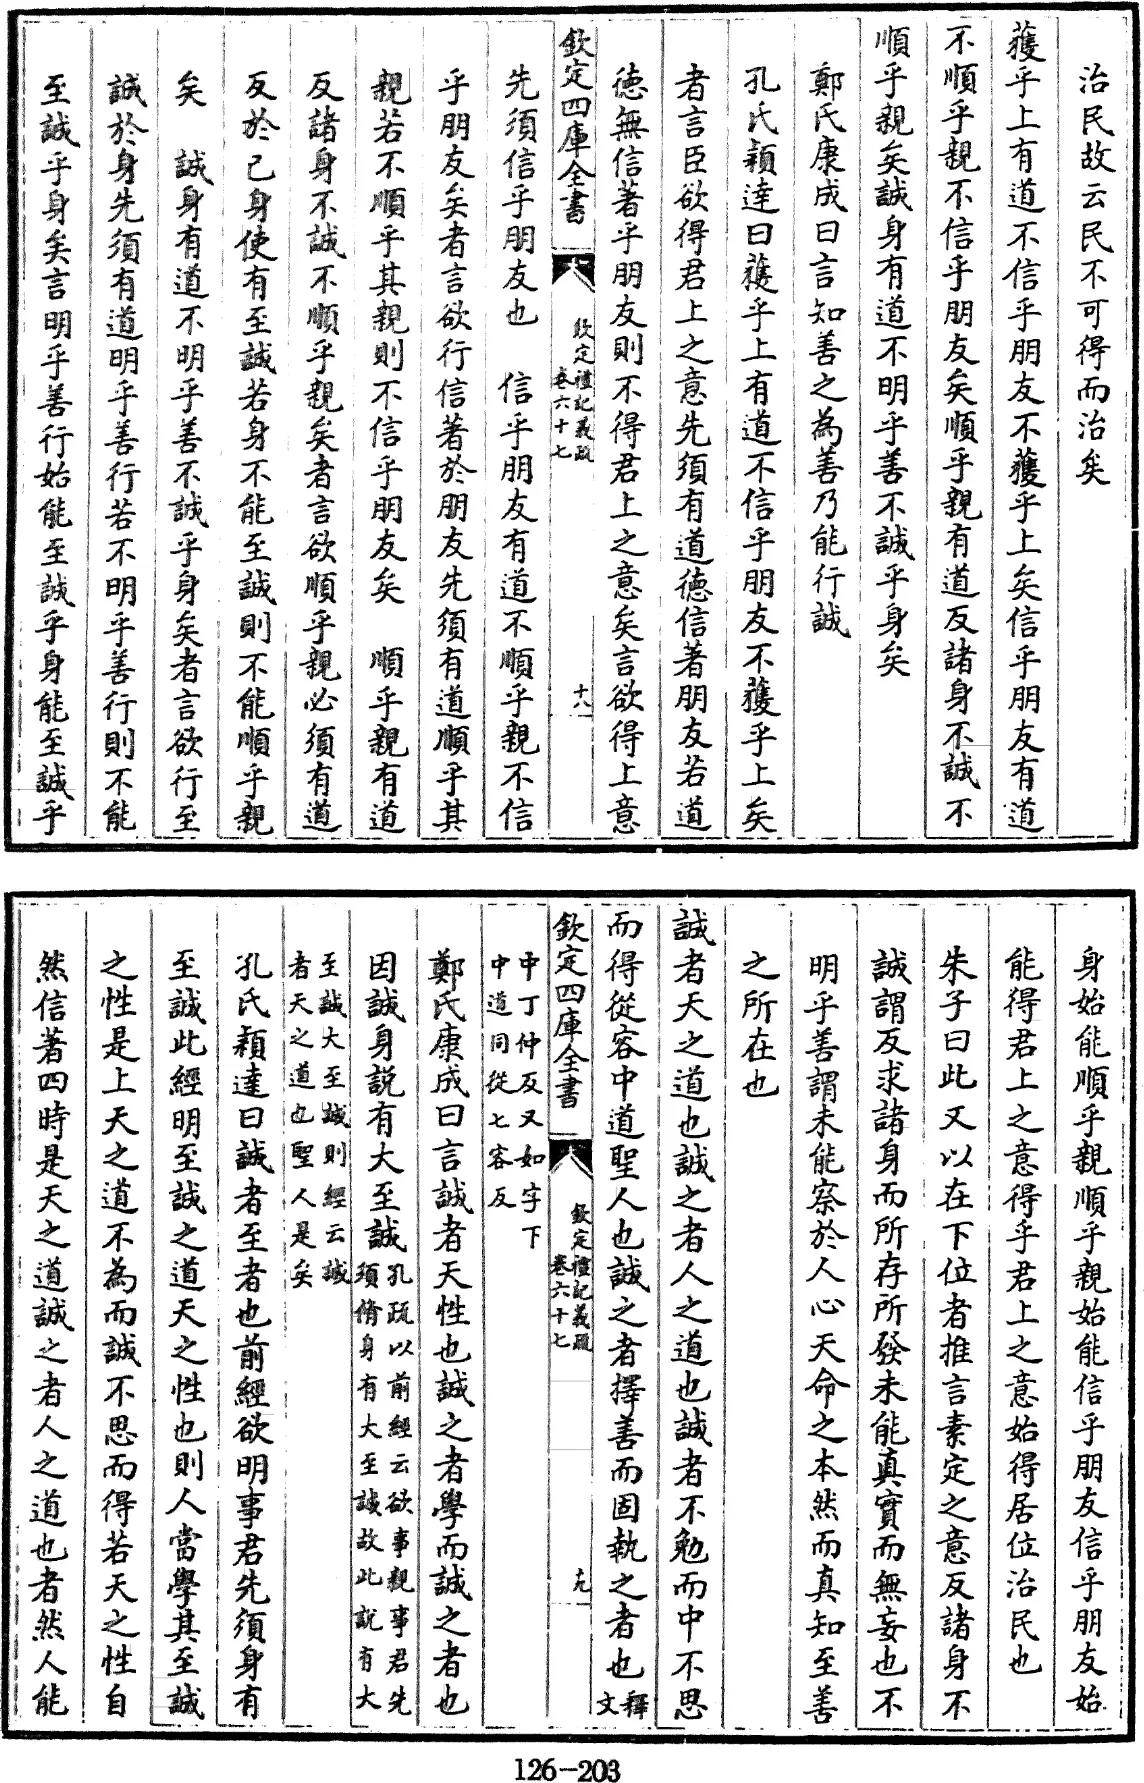 治民故云民不可得而治矣
獲乎上有道不信乎朋友不獲乎上矣信乎朋友有道
不順乎親不信乎朋友矣順乎親有道反諸身不誠不
順乎親矣誠身有道不明乎善不誠乎身矣
鄭氏康成曰言知善之為善乃能行誠
孔氏穎達曰獲乎上有道不信乎朋友不獲乎上矣
者言臣欲得君上之意先須有道德信著朋友若道
德無信著乎朋友則不得君上之意矣言欲得上意
欽定四庫全書
欽定禮記義疏
卷六十七
十八
先須信乎朋友也　信乎朋友有道不順乎親不信
乎朋友矣者言欲行信著於朋友先須有道順乎其
親若不順乎其親則不信乎朋友矣　順乎親有道
反諸身不誠不順乎親矣者言欲順乎親必須有道
反於己身使有至誠若身不能至誠則不能順乎親
矣　誠身有道不明乎善不誠乎身矣者言欲行至
誠於身先須有道明乎善行若不明乎善行則不能
至誠乎身矣言明乎善行始能至誠乎身能至誠乎
身始能順乎親順乎親始能信乎朋友信乎朋友始
能得君上之意得乎君上之意始得居位治民也
朱子曰此又以在下位者推言素定之意反諸身不
誠謂反求諸身而所存所發未能真實而無妄也不
明乎善謂未能察於人心天命之本然而真知至善
之所在也
誠者天之道也誠之者人之道也誠者不勉而中不思
而得從容中道聖人也誠之者擇善而固執之者也釋文
欽定四庫全書
欽定禮記義疏
卷六十七
十九
中丁仲反又如字下
中道同從七容反
鄭氏康成曰言誠者天性也誠之者學而誠之者也
因誠身說有大至誠孔疏以前經云欲事親事君先
須脩身有大至誠故此說有大
至誠大至誠則經云誠
者天之道也聖人是矣
孔氏穎達曰誠者至者也前經欲明事君先須身有
至誠此經明至誠之道天之性也則人當學其至誠
之性是上天之道不為而誠不思而得若天之性自
然信著四時是天之道誠之者人之道也者然人能
126-203